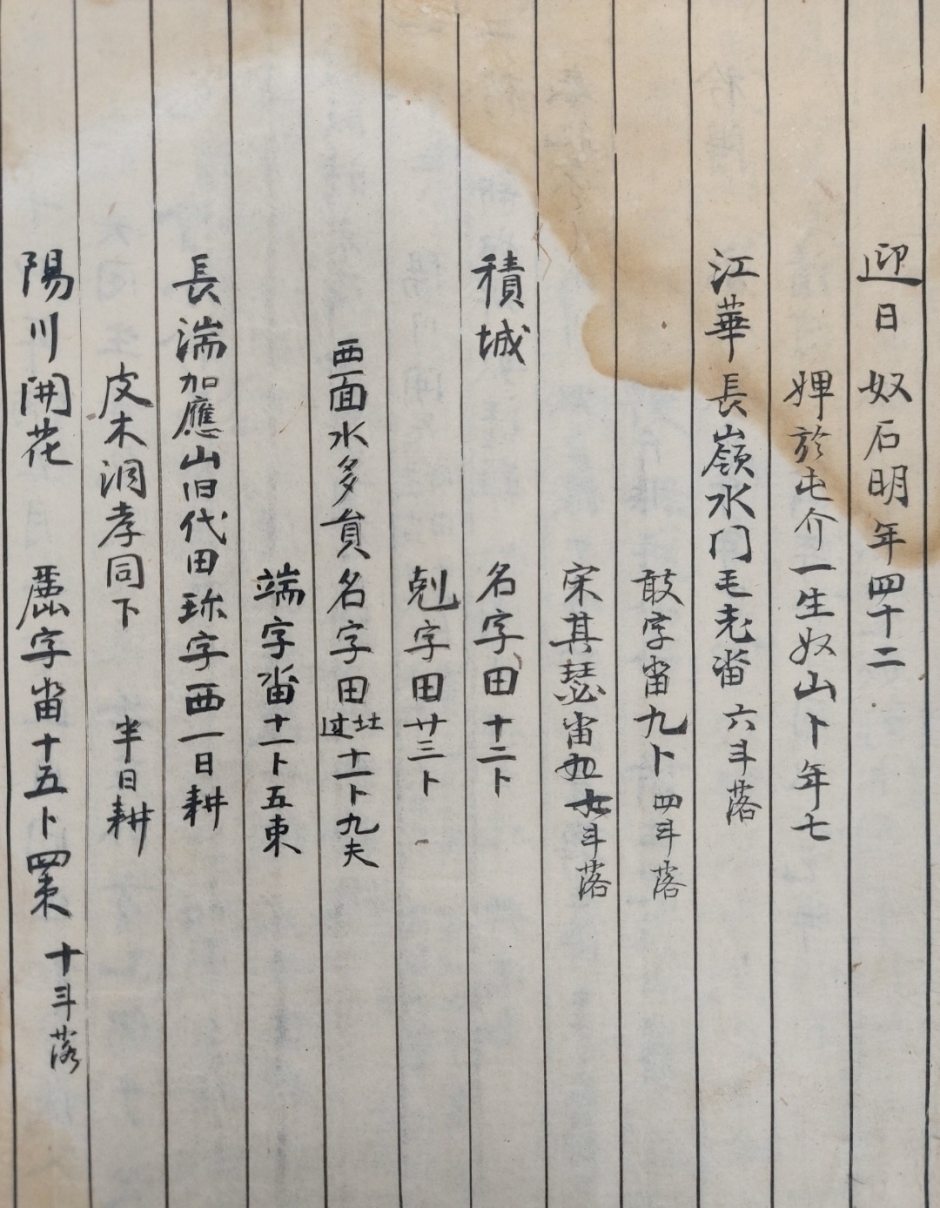 迎日 奴石明年四十二
婢於屯介一生奴山卜年七
江華 長嶺水门毛老畓 六斗落
敢字畓九卜 四斗落
宋其瑟畓 斗落
積城 名字田十二卜
剋字田廿三卜
西面水多員名字田 十一卜九夫
端字畓十一卜五束
長湍加應山旧代田珎字西一日耕
皮木洞孝同下 半日耕
陽川開花 麗字畓十五卜四束 十斗落